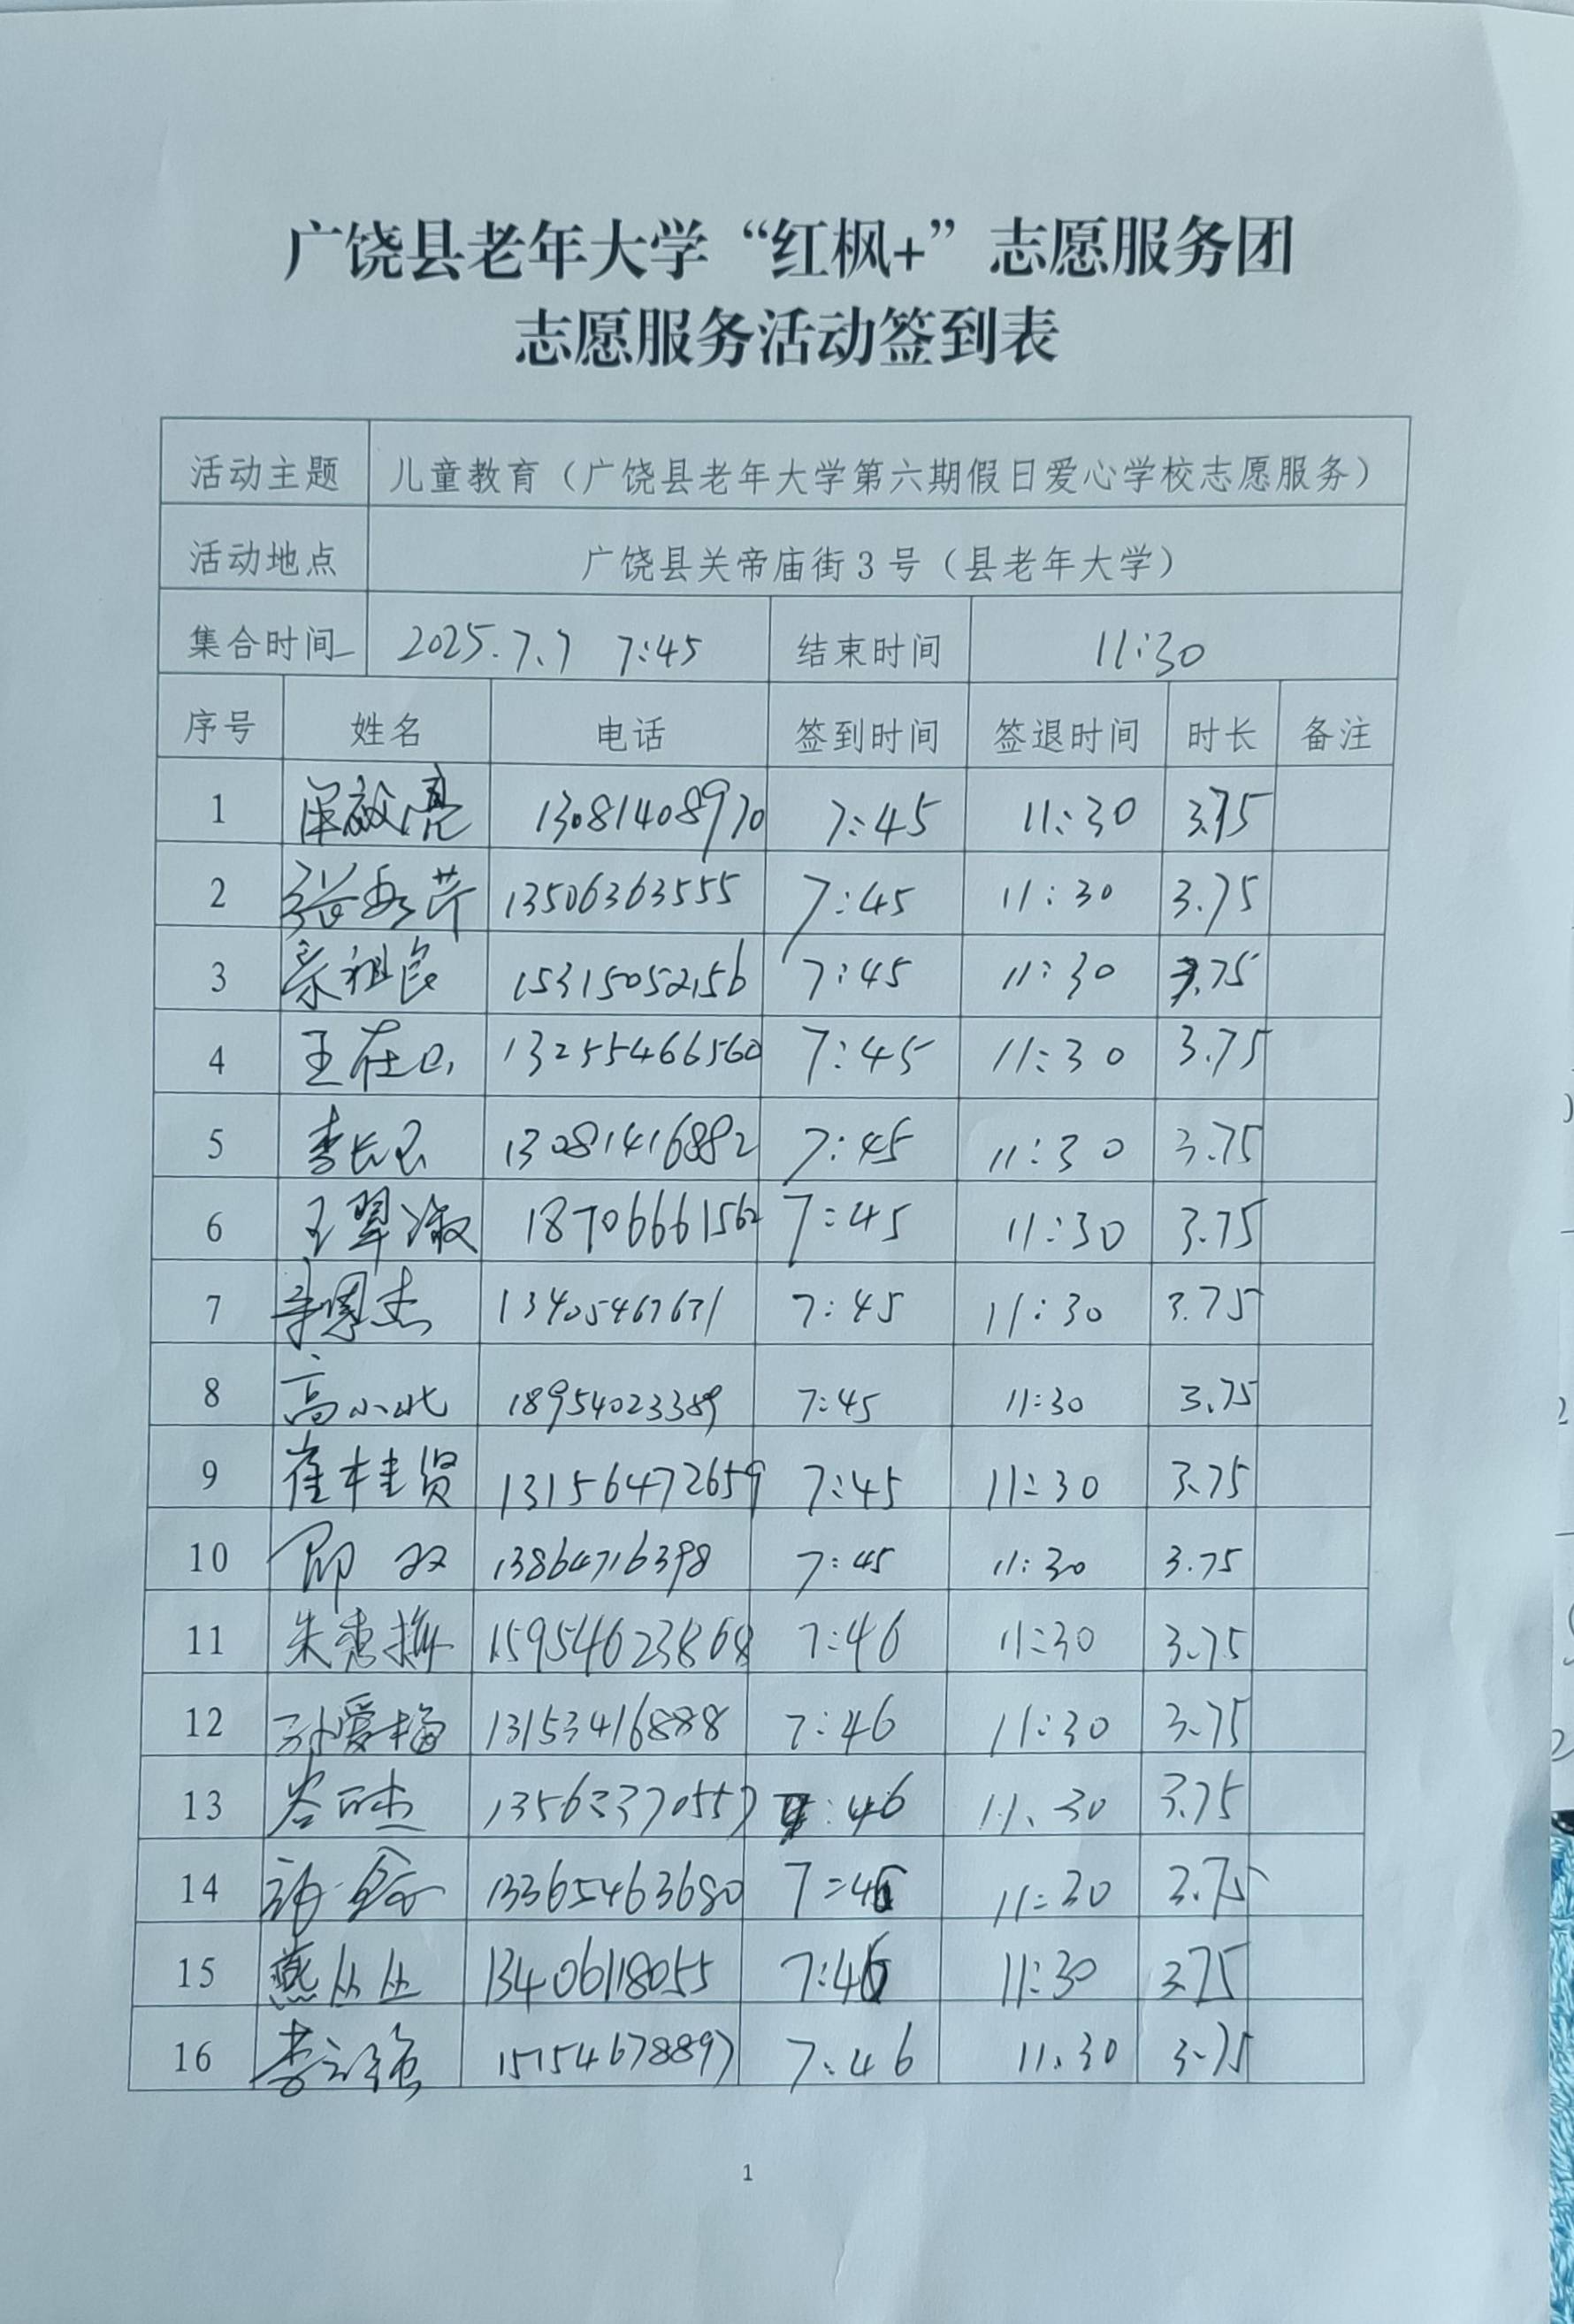 广饶县老年大学“红枫+”志愿服务团
志愿服务活动签到表
活动主题 儿童教育（广饶县老年大学第六期假日爱心学校志愿服务）
活动地点 广饶县关帝庙街3号（县老年大学）
集合时间 2025.7.7 7:45 结束时间 11:30
序号 姓名 电话 签到时间 签退时间 时长 备注
1 13081408970 7:45 11:30 3.75
2 13506363555 7:45 11:30 3.75
3 宗祖良 15315052156 7:45 11:30 3.75
4 13255466560 7:45 11:30 3.75
5 13081416882 7:45 11:30 3.75
6 王翠淑 18706661562 7:45 11:30 3.75
7 7:45 11:30 3.75
8 高小北 18954023389 7:45 11:30 3.75
9 崔桂贤 13156472659 7:45 11:30 3.75
10 13864716398 7:45 11:30 3.75
11 15954623868 7:46 11:30 3.75
12 孙爱梅 13153416888 7:46 11:30 3.75
13 13562370557 7:46 11.30 3.75
14 13365463680 7:46 11:30 3.75
15 燕丛丛 13406118055 7:46 11:30 3.75
16 15154678897 7:46 11.30 3.75
1